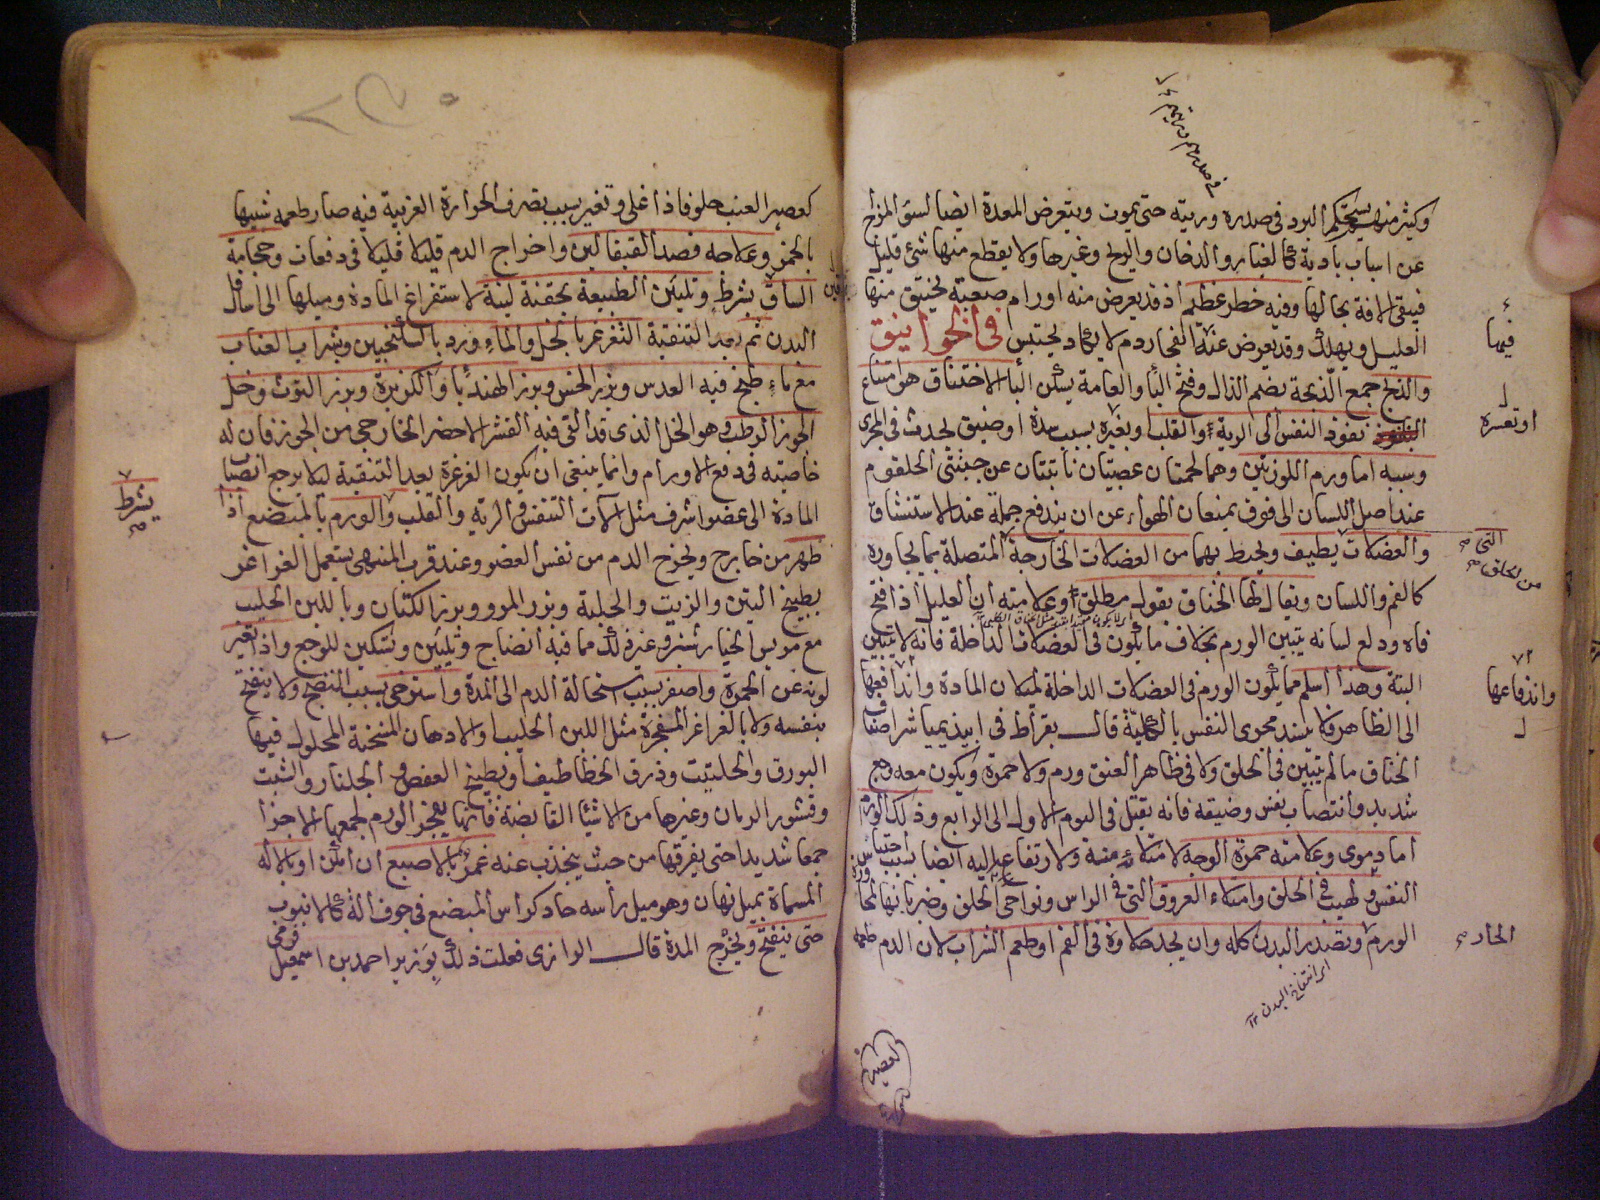 وكثير منهم يستحكم البرد في صدره وريته حتى يموت ويتعرض المعدة ايضا لسوء المزاج
عن اسباب بادية كالغبار والدخان والريح وغيرها ولا يقطع منها شئ قليل
فيبقى الافة بحالها وفيه خطر عظيم اذ قد يعرض منه اورام صعبة يختنق منها
العليل ويهلك وقد يعرض عنه انفجار دم لا يكاد يحتبس في الخوانيق
والذبح جمع الذبحة بضم الذال وفتح البأ والعامة يسكن البأ الاختناق هو امتناع
نفوذ النفس الى الرية والقلب او تغيره بسبب سدة او ضيق يحدث في المجرى
وسببه اما ورم اللوزتين وهما لحمتان عصبيتان نابتتان عن جنبتى الحلقوم
عند اصل اللسان الى فوق يمنعان الهواء عن ان يندفع جملة عند الاستنشاق
والعضلات يطيف ويحيط بهما من العضلات الخارجة المتصلة بما يجاوره
كالفم واللسان ويقال لها الخناق بقول مطلق وعلامته ان العليل اذا فتح
فاه ودلع لسانه يتبين الورم بخلاف ما يكون في العضلات الداخلة فانه لا يتبين
البتة وهذا اسلم مما يكون الورم في العضلات الداخلة لميلان المادة واندافعها
الى الظاهر فلا ينسد مجرى النفس بالكلية قال بقراط في ابيذيميا شر اصناف
الخناق ما لم يتبين في الحلق ولا في ظاهر العنق ورم ولا حمرة ويكون معه وجع
شديد وانتصاب نفس وضيقه فانه يقتل في اليوم الاول الى الرابع وذلك الورم
اما دموى وعلامته حمرة الوجه لامتلائه منه ولارتفاعه اليه ايضا بسبب احتباس
النفس ولهيب في الحلق وامتلاء العروق التى في الراس ونواحى الحلق وضربانها
الورم وتمدد البدن كله وان يجد حلاوة في الفم او طعم الشراب لان الدم طعمه
فيها
او تعسره
التى
من الحلق
واندفاعها
الحار
اى انتفاخ البدن ١٢
كعصير
كعصير العنب حلو فاذا غلى وتغير بسبب تصرف الحرارة الغريبة فيه صار طعمه شبيها
بالخمر وعلاجه فصد القيفالين واخراج الدم قليلا قليلا في دفعات وحجامة
الساق بشرط وتليين الطبيعة بحقنة لينة لاستفراغ المادة وميلها الى اسافل
البدن ثم بعد التنقية التغرغر بالخل والماء ورد بالسكنجبين وشراب العناب
مع ماء طبخ فيه العدس وبزر الخس وبزر الهندبا والكزبرة وبزر التوث وخل
الجوز الرطب وهو الخل الذى قد القى فيه القشر الاخضر الخارجى من الجوز فان له
خاصيته في دفع الاورام وانما ينبغى ان يكون الغرغرة بعد التنقية ليلا يرجع انصبا
المادة الى عضو اشرف مثل الات التنفس في الرية والقلب والورم بالمبضع اذا
ظهر من خارج ويخرج الدم من نفس العضو وعند قرب المنتهى يستعمل الغراغر
بطبيخ التين والزبيب والحلبة وبزر المرو وبزر الكتان وباللبن الحليب
مع مريس الخيار شنبر وغير ذلك مما فيه انضاج وتليين وتسكين للوجع واذا تغير
لونه عن الحمرة واصفر بسبب استحالة الدم الى المدة واسترخى بسبب النضج ولا ينفتح
بنفسه ولا بالغراغر المفجرة مثل اللبن الحليب والادهان المسخنة المحلول فيها
البورق والحلتيت وذرق الخطاطيف او بطبيخ العفص والجلنار والشبت
وقشور الرمان وغيرها من الاشيأ القابضة فانها يفجر الورم لجمعها الاجزا
جمعا شديدا حتى يفرقها من حيث ينجذب عنه غمز بالاصبع ان امكن او بالالة
المسماة بميل نهان وهو ميل رأسه حاد كراس المبضع في جوف الة كالانبوب
حتى ينفتح ويخرج المدة قال الرازى فعلت ذلك بوزير احمد بن اسمعيل
بشرط